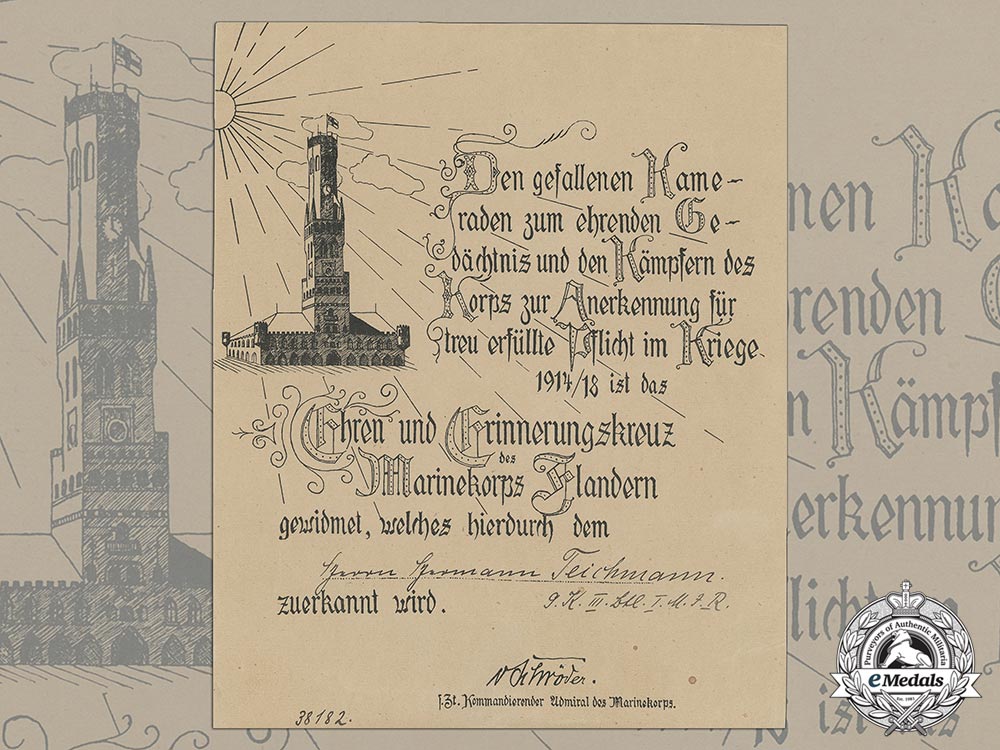 Den gefallenen Kame-
raden zum ehrenden Ge-
dächtnis und den Kämpfern des
Korps zur Anerkennung für
treu erfüllte Pflicht im Kriege
1914/18 ist das
Ehren und Erinnerungskreuz
des
Marinekorps Flandern
gewidmet, welches hierdurch dem
Herrn Hermann Teichmann.
zuerkannt wird.
9. K. III. Btl. I. M. I. R.
v Schröder.
z. Zt. Kommandierender Admiral des Marinekorps.
38182.
Purveyors of Authentic Militaria
eMedals
Est. 1983